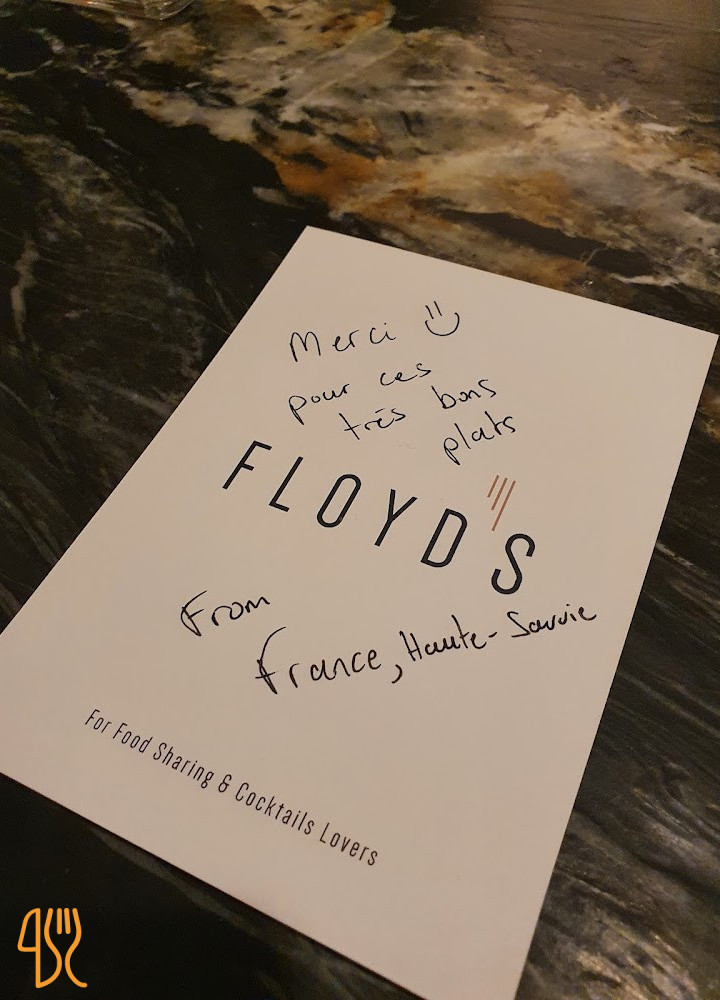 Merci
pour ces
très bons
plats
FLOYD'S
From
France, Haute-Savoie
For Food Sharing & Cocktails Lovers